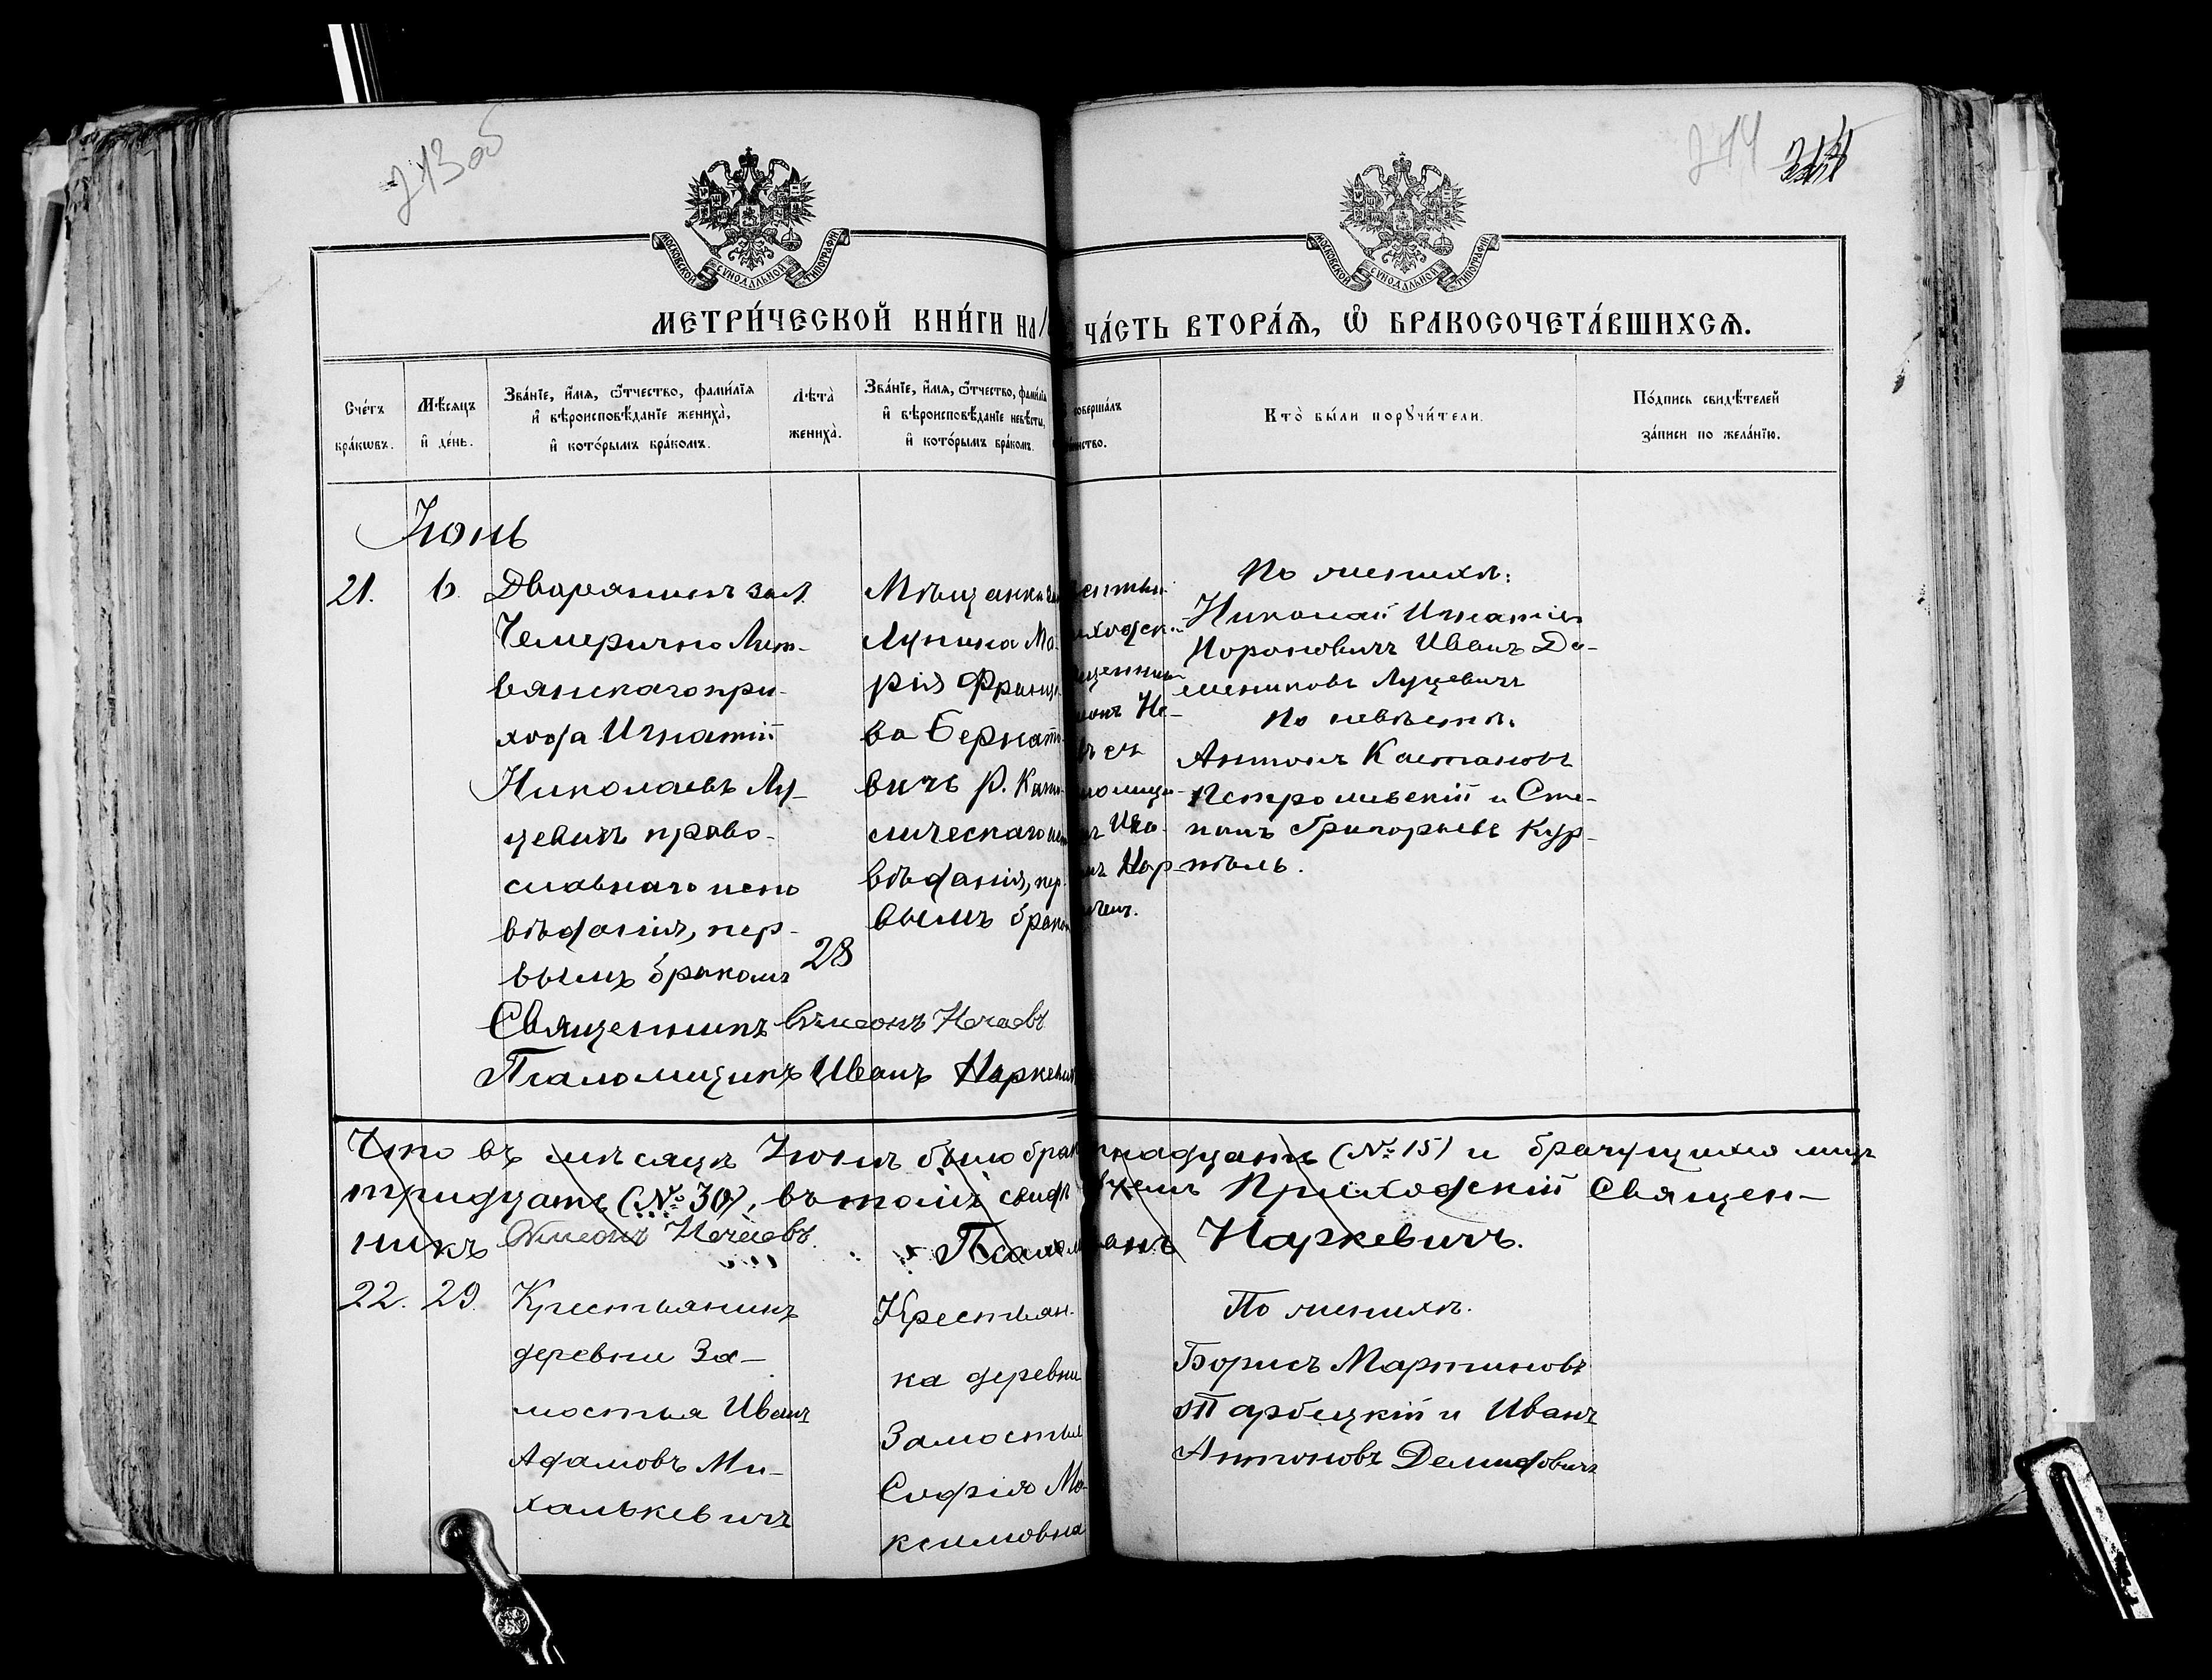 243 об
244
МОСКОВСКОЙ СѴНОДАЛЬНОЙ ТИПОГРАФІИ
МОСКОВСКОЙ СѴНОДАЛЬНОЙ ТИПОГРАФІИ
МЕТРИ́ЧЕСКОЙ КНИ́ГИ НА
ЧА́СТЬ ВТОРА́Ѧ, Ѽ БРАКОСОЧЕТА́ВШИХСѦ.
Сче́тъ бра́кѡвъ.
Мѣ́сѧцъ и҆ де́нь.
Зва́нїе, и҆́мѧ, ѻ҆́тчество, фами́лїѧ и҆ вѣроисповѣ́данїе жениха̀, и҆ кото́рымъ бра́комъ.
Лѣта̀ жениха̀.
Зва́нїе, и҆́мѧ, ѻ҆́тчество, фами́лїѧ и҆ вѣроисповѣ́данїе невѣ́сты, и҆ кото́рымъ бра́комъ.
соверша́лъ
Кто̀ бы́ли порꙋчи́тели.
По́дпись свидѣ́телей за́писи по жела́нїю.
Іюнь
21.
6.
Дворянинъ заст.
Чемерично Лит-
вянскаго при-
хода Игнатій
Николаевъ Лу-
цевичъ право-
славнаго испо
вѣданія, пер-
вымъ бракомъ
28
Мѣщанка
Лунина Ма-
рія Франц
ва Бернат
вичъ Р. Кат
лическаго
вѣданія, пер
вымъ брако
По женихѣ:
Николай Игнатіевъ
Нороновичъ Иванъ До-
мениковъ Луцевичъ
По невѣстѣ:
Антонъ Кастановъ
Петрошевскій и Сте-
панъ Григорьевъ Кур-
тель.
Священникъ Сѵмеонъ Нечаевъ
Псаломщикъ Иванъ Наркевич
Что въ мѣсяцѣ Іюнѣ было брак
надцать (№ 15) и брачущихся лицъ
тридцать (№ 30), въ томъ свидѣ
Приходскій Священ-
никъ Сѵмеонъ Нечаевъ.
Псалом
Наркевичъ.
22.
29.
Крестьянинъ
деревни За-
мостья Иванъ
Адамовъ Ми-
халькевичъ
Крестьян-
ка деревни
Замостья
Софія Ма-
ксимовна
По женихѣ.
Борисъ Мартиновъ
Тарбецкій и Иванъ
Антоновъ Демидовичъ